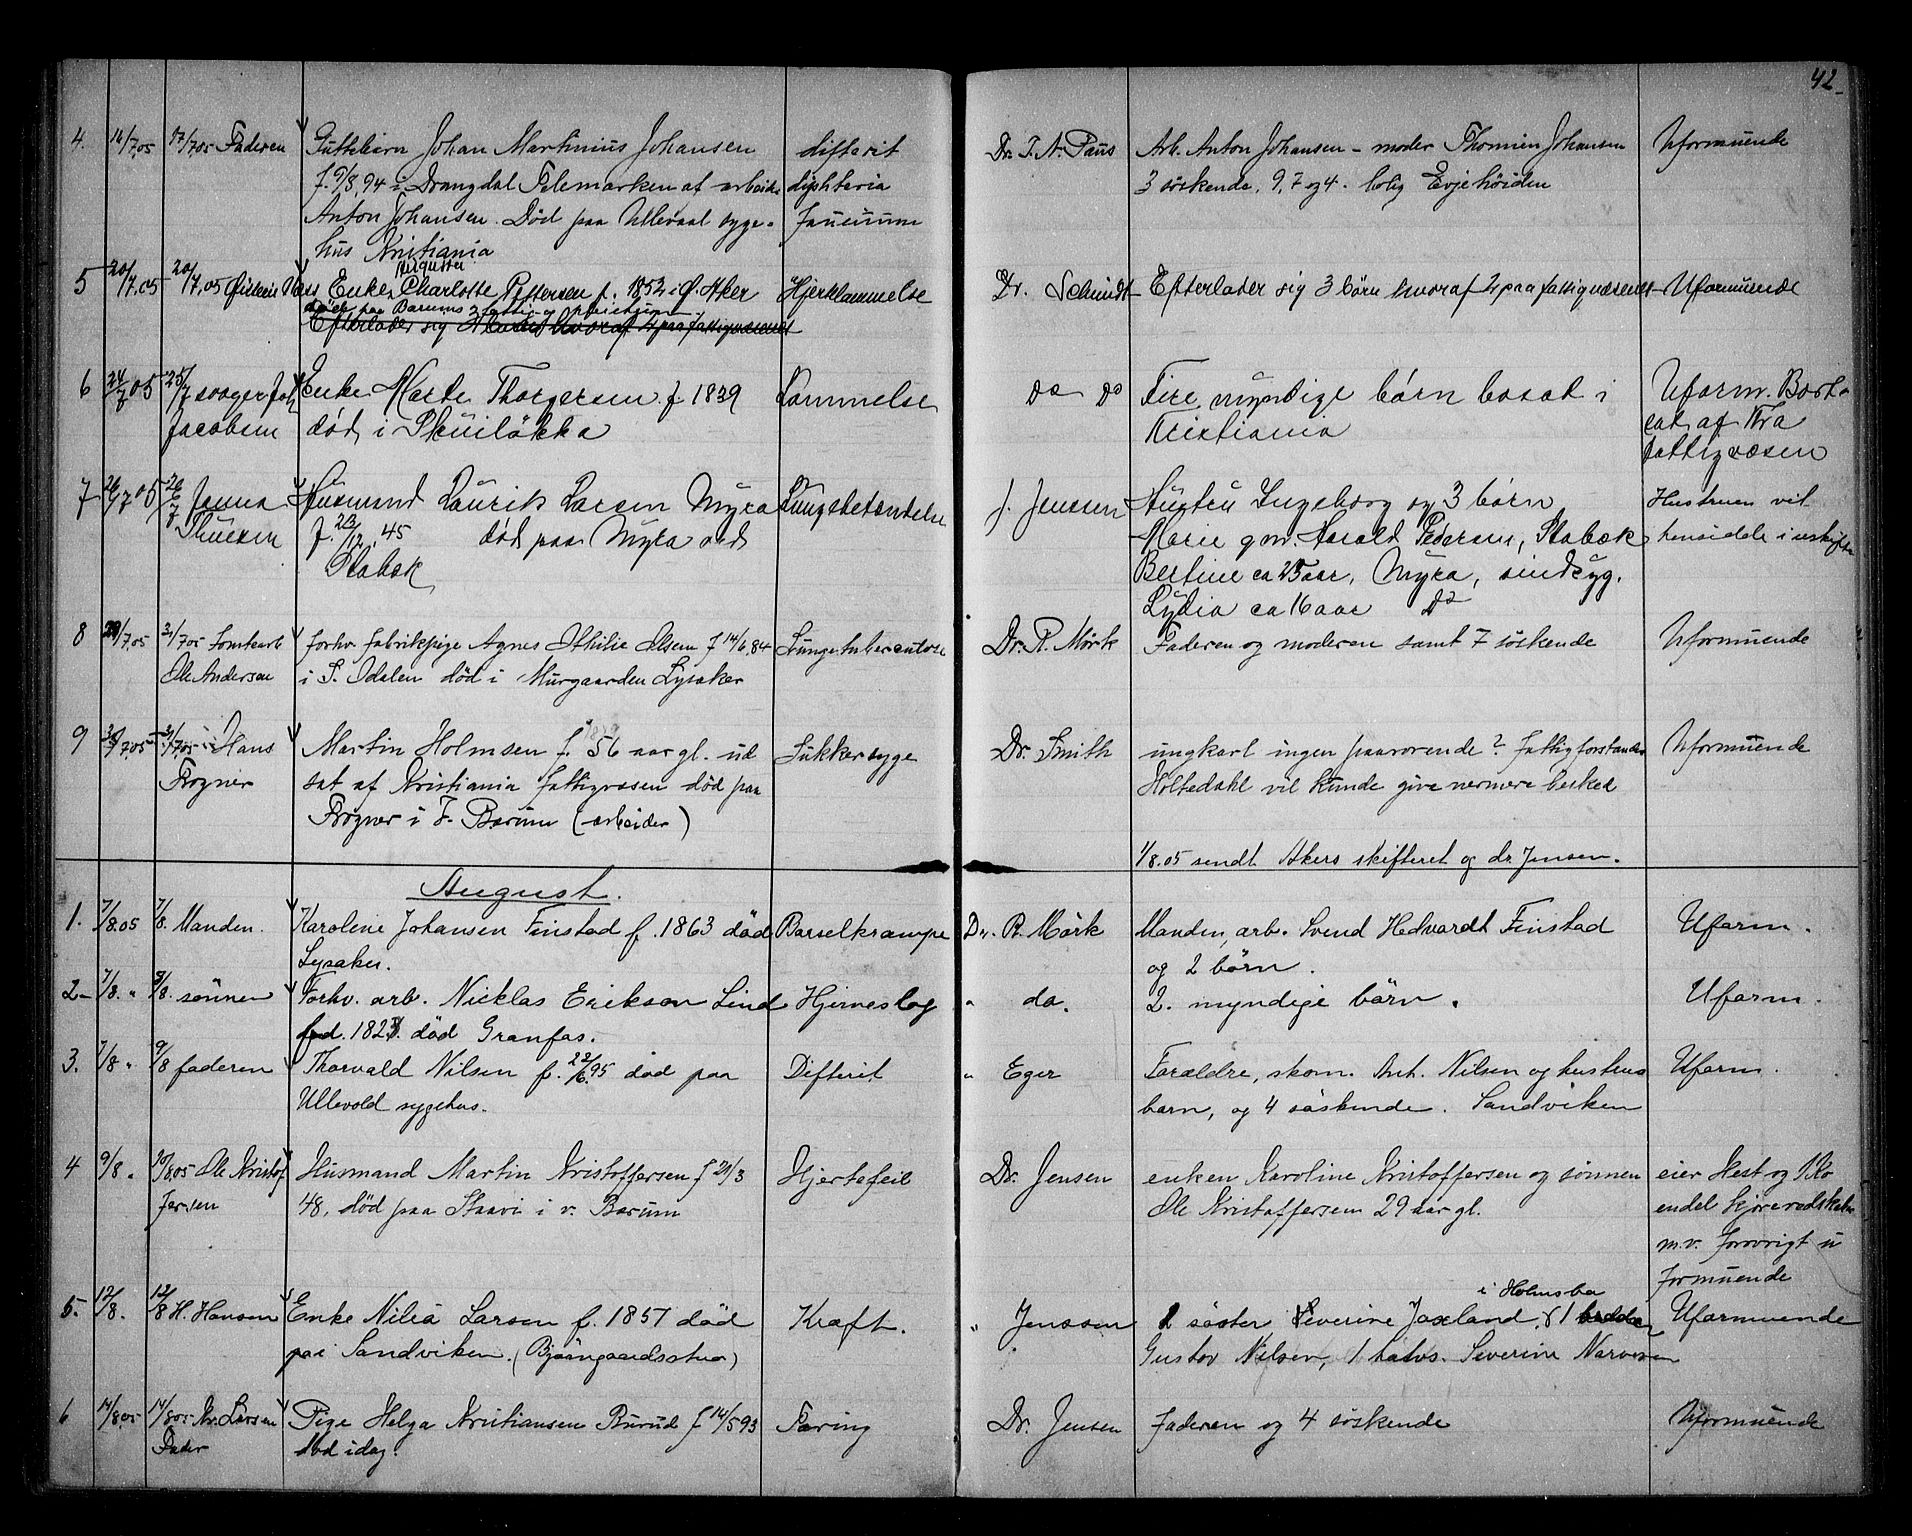 42
4. 14/7.05 17/7.05 Faderen Guttebarn Johan Martinius Johansen difterit Dr. T. N. Paus Arb. Anton Johansen - moder Thomine Johansen Uformuende
f. 9/8, 94 i Drangdal Telemarken af arbeider diphteria 3 söskende, 9, 7 og 4. bolig Evjehöiden
Anton Johansen. Död paa Ullevaal syge- faucium
hus Kristiania
Augusta
5 20/7.05 20/7.05 Enke Charlotte Pettersen f. 1852 i Ø. Aker Hjertelammelse Dr. Schmidt Efterlader sig 3 börn hvoraf 2 paa fattigvæsenet Uformuende
Död paa Bærums fattig og pleiehjem
Efterlader sig hvoraf 2 paa fattigvæsenet
6 24/7 05 25/7 svoger Joh. Enke Marte Thorgersen f. 1839 Lammelse do do Fire myndige börn bosat i Uform. Bort-
Jacobsen död i Skuilökka Kristiania sat af Kra
fattigvæsen
7 26/7 05 26/7 Jenna Husmand Laurik Larsen Myra Lungebetendelse J. Jensen Hustru Ingeborg og 3 börn Hustruen vil
Thuesen f. 23/12.45 död paa Myra ved Marie gm. Harald Pedersen, Stabæk hensidde i uskiftet
Stabæk Bertine ca 25 aar, Myra, sindsyg.
Lydia ca 16 aar do
8 29/7.05 31/7 05 Tomtearb. forhv. fabrikpige Agnes Othilie Olsen f 14/6.84 Lungetuberculose Dr. R. Mörk Faderen og moderen samt 7 söskende Uformuende
Ole Andersen i S. Odalen död i Murgaarden Lysaker
9 30/7.05 31/7.05 Hans Martin Holmsen f. 56 aar gl. ud Sukkersyge Dr. Smith ungkarl ingen paarörende? Fattigforstander Uformuende
Frogner sat af Kristiania fattigvæsen död paa Holtedahl vil kunde give nermere besked
Frogner i V. Bærum (arbeider)
1/8.05 sendt Akers skifteret og dr. Jensen.
August.
1. 7/8.05 7/8. Manden. Karoline Johansen Finstad f. 1863 död Barselkrampe Dr. R. Mörk Manden, arb. Svend Hedvardt Finstad Uform.
Lysaker. og 2 börn.
2- 7/8. " 8/8. sönnen Forhv. arb. Nicklas Erikson Lind Hjerneslag " do. 2. myndige börn. Uform.
död Granfos.
3. 7/8 " 9/8 faderen Thorvald Nilsen f. 22/6.95 död paa Difterit " Eger Forældre, skom. Ant. Nilsen og hustrus Uform.
Ullevold sygehus. barn, og 4 söskende. Sandviken
4 9/8. " 10/8.05 Ole Kristof Husmand Martin Kristoffersen f 21/3 Hjertefeil Dr. Jensen enken Karoline Kristoffersen og sönnen eier Hest og 1 Ko
fersen 48, död paa Staavi i v. Bærum Ole Kristoffersen 29 aar gl. endel kjöreredskaber
m.v. forövrigt u
formuende
i Holmsbo
5. 12/8. 12/8 H. Hansen Enke Nilia Larsen f. 1857 död Kræft. " Jenssen 1 söster Severine Joxland, & 1 broder Uformuende
paa i Sandviken. (Bjørngaardsstua) Gustav Nilsen, 1 halvs. Severine Narvesen
6 14/8.05 14/8 05 Kr. Larsen Pige Helga Kristiansen Burud f 14/5 93 Tæring Dr. Jensen Faderen og 4 söskende Uformuende
Fader död idag.